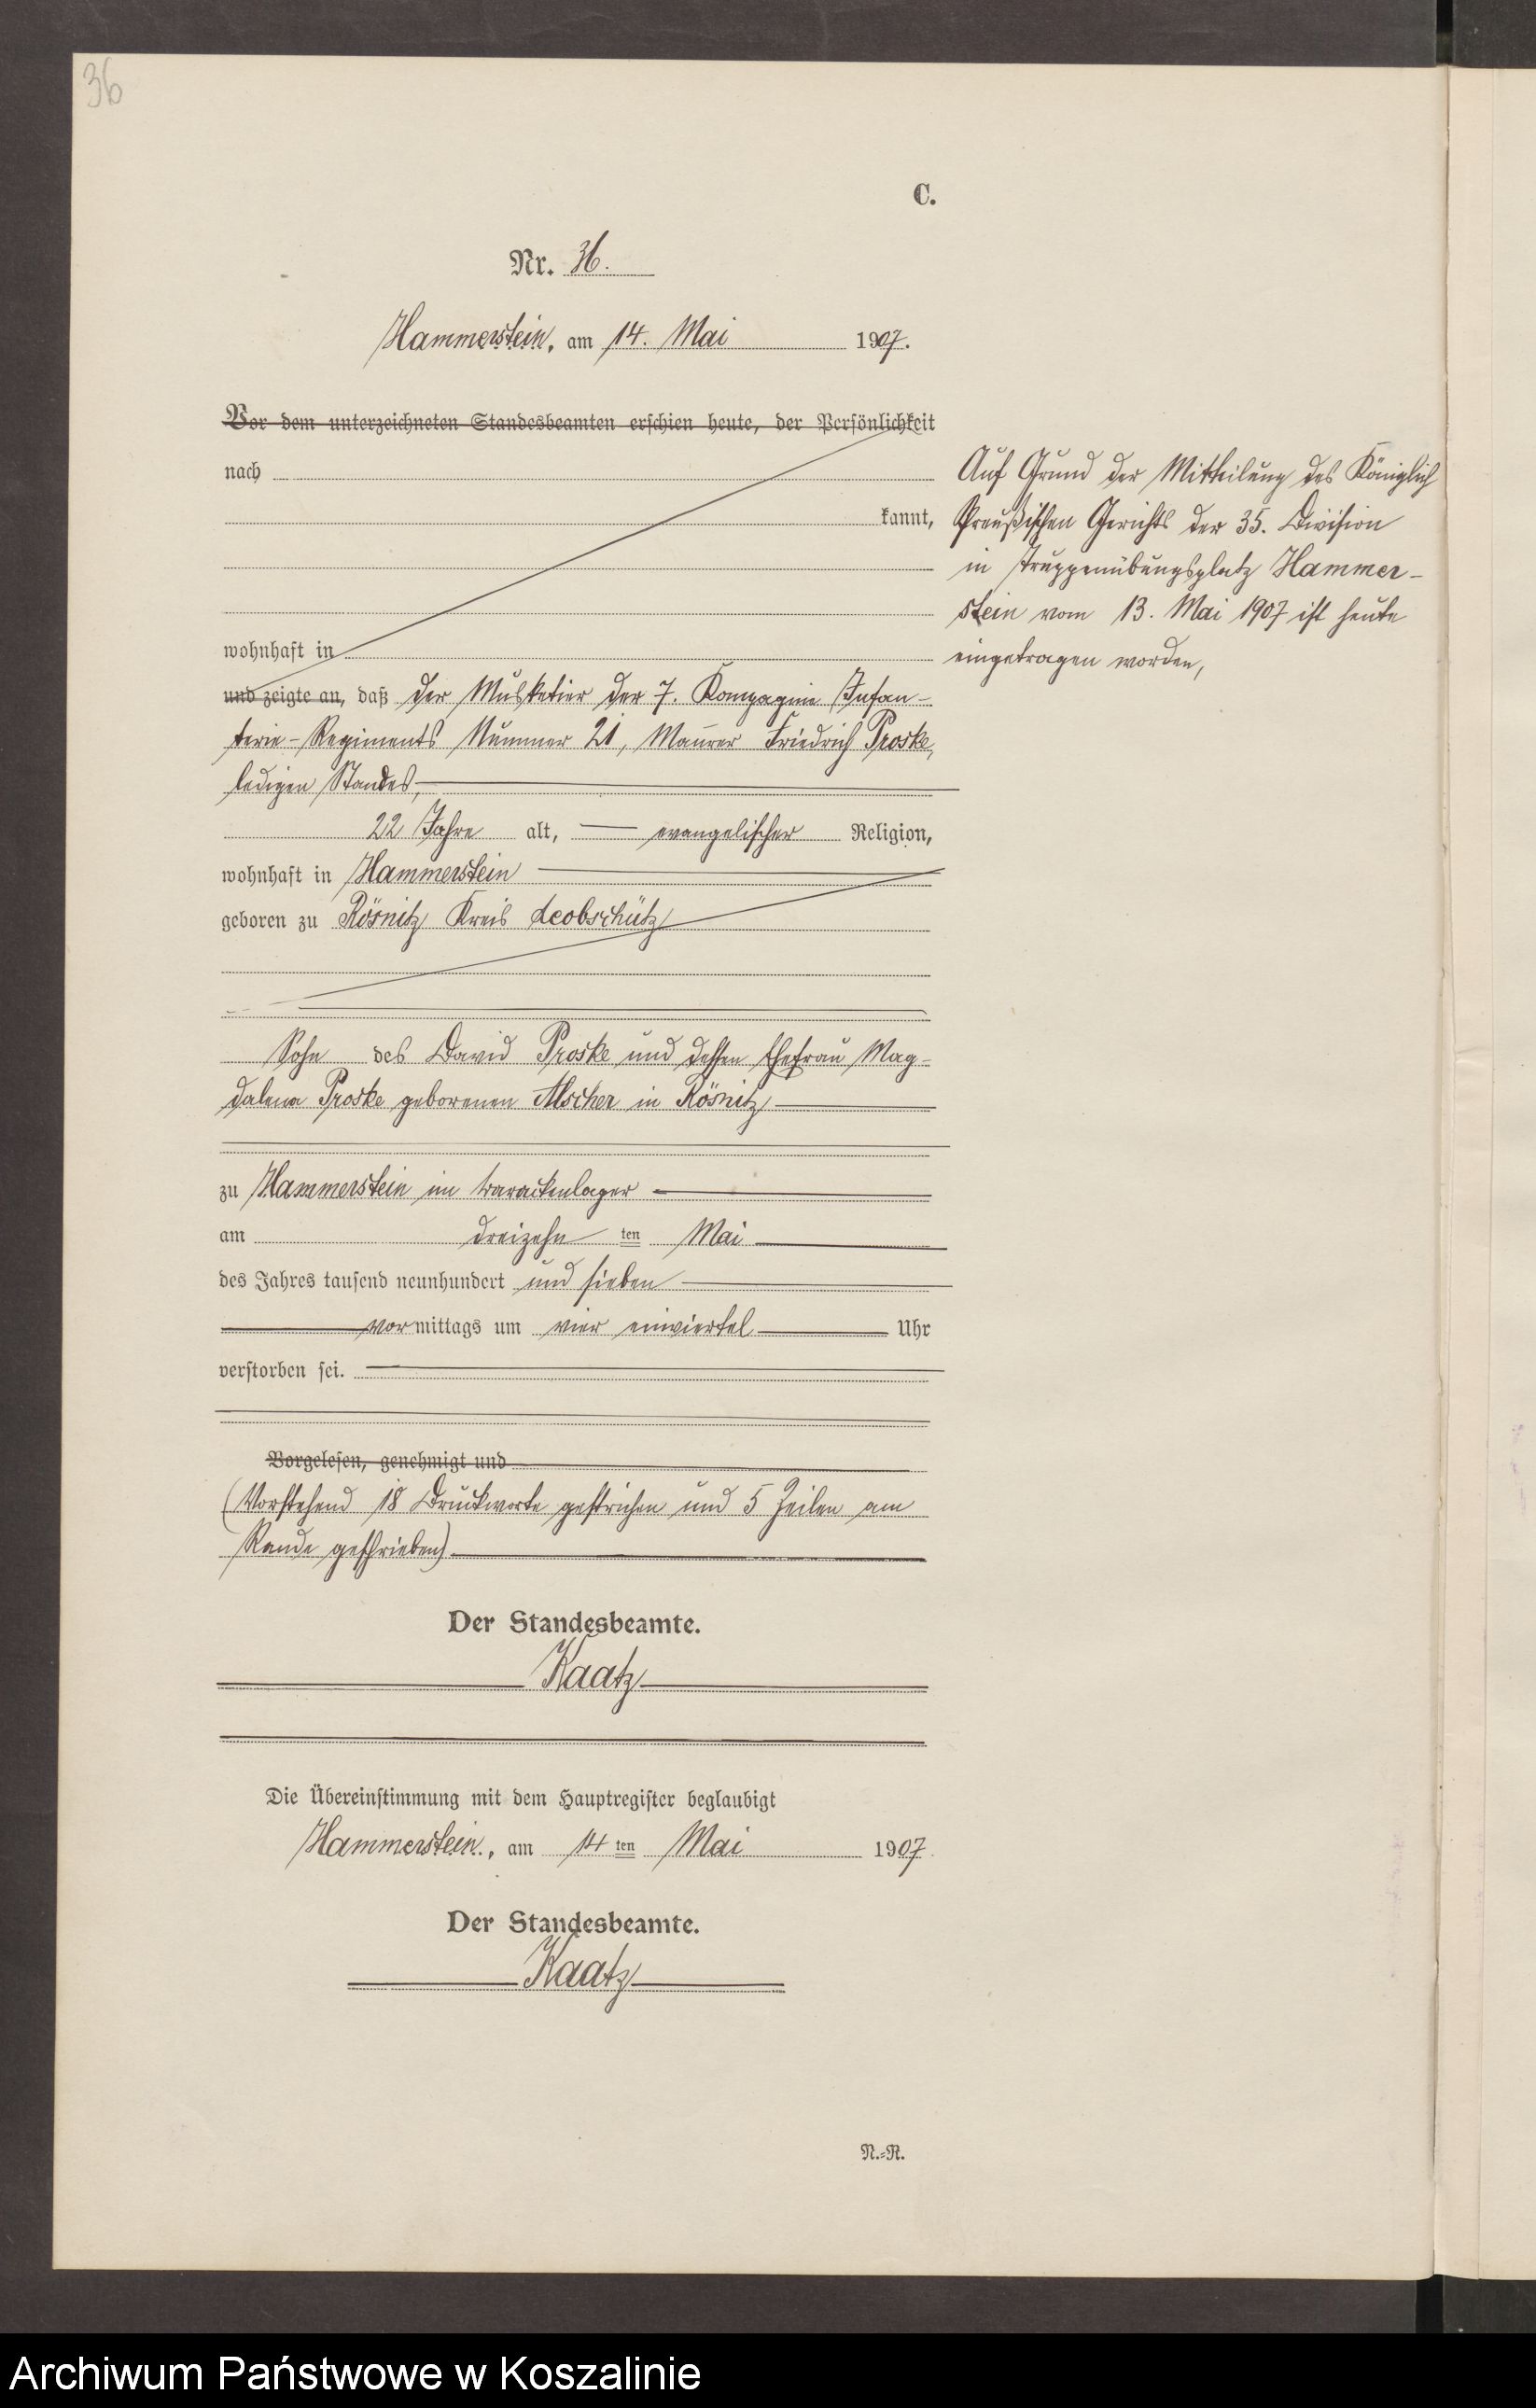 36
C.
Nr. 36.
Hammerstein, am 14. Mai 1907.
Vor dem unterzeichneten Standesbeamten erschien heute, der Persönlichkeit
nach
kannt,
wohnhaft in
und zeigte an, daß der Musketier der 7. Kompagnie Infan-
terie-Regiments Nummer 21, Maurer Friedrich Proske,
ledigen Standes,
22 Jahre alt, evangelischer Religion,
wohnhaft in Hammerstein
geboren zu Rösnitz Kreis Leobschütz
Sohn des David Proske und dessen Ehefrau Mag-
dalena Proske geborenen Alscher in Rösnitz
zu Hammerstein im Barackenlager
am dreizehn ten Mai
des Jahres tausend neunhundert und sieben
vormittags um vier einviertel Uhr
verstorben sei.
Vorgelesen, genehmigt und
(Vorstehend 18 Druckworte gestrichen und 5 Zeilen am
Rande geschrieben)
Der Standesbeamte.
Kaatz
Die Übereinstimmung mit dem Hauptregister beglaubigt
Hammerstein, am 14 ten Mai 1907.
Der Standesbeamte.
Kaatz
N.-R.
Auf Grund der Mitteilung des Königlich
Preußischen Gerichts der 35. Division
in Truppenübungsplatz Hammer-
stein vom 13. Mai 1907 ist heute
eingetragen worden,
Archiwum Państwowe w Koszalinie